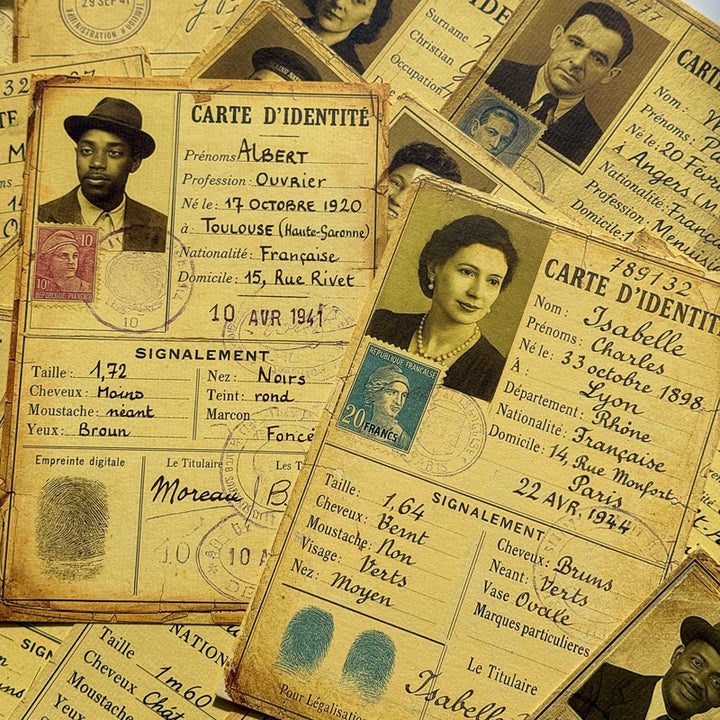 CARTE D'IDENTITÉ
Prénoms ALBERT
Profession: OUVRIER
Né le: 17 OCTOBRE 1920
à TOULOUSE (HAUTE-GARONNE)
Nationalité: Française
Domicile: 15, RUE RIVET
10 AVR 1941
10
10F
REPUBLIQUE PIANÇENS
10
SIGNALEMENT
Taille: 1,72
Cheveux: Moins
Moustache: néant
Yeux: Broun
Nez: Noirs
Teint: rond
Marcon
Foncé
Empreinte digitale
Le Titulaire
Les T
Moreau
B
10 A
789132
CARTE D'IDENTIT
Nom: Isabelle
Prénoms: Charles
Né le: 33 octobre 1898
À: Lyon
Département: Rhône
Nationalité: Française
Domicile: 14, Rue Monfort
Paris
22 AVR, 1944
REPUBLIQUE FRANÇAISE
20 FRANCS
PARIS
SIGNALEMENT
Taille: 1,64
Cheveux: Bernt
Moustache: Non
Visage: Verts
Nez: Moyen
Cheveux: Bruns
Neant: Verts
Vase Ovale
Marques particulieres
Le Titulaire
Pour Légalisation
Isabelle
29 SEPT 41
ADMINISTRATION
Surname
Christian
Occupation
CARTE
Nom:
Prénoms:
Né le: 20 Févr
à Angers (M
Nationalité: França
Profession: Menuisi
Domicile: 1
32
SIGN
NATION
Taille 1m60
Cheveux: Chât
Moustach
Yeux